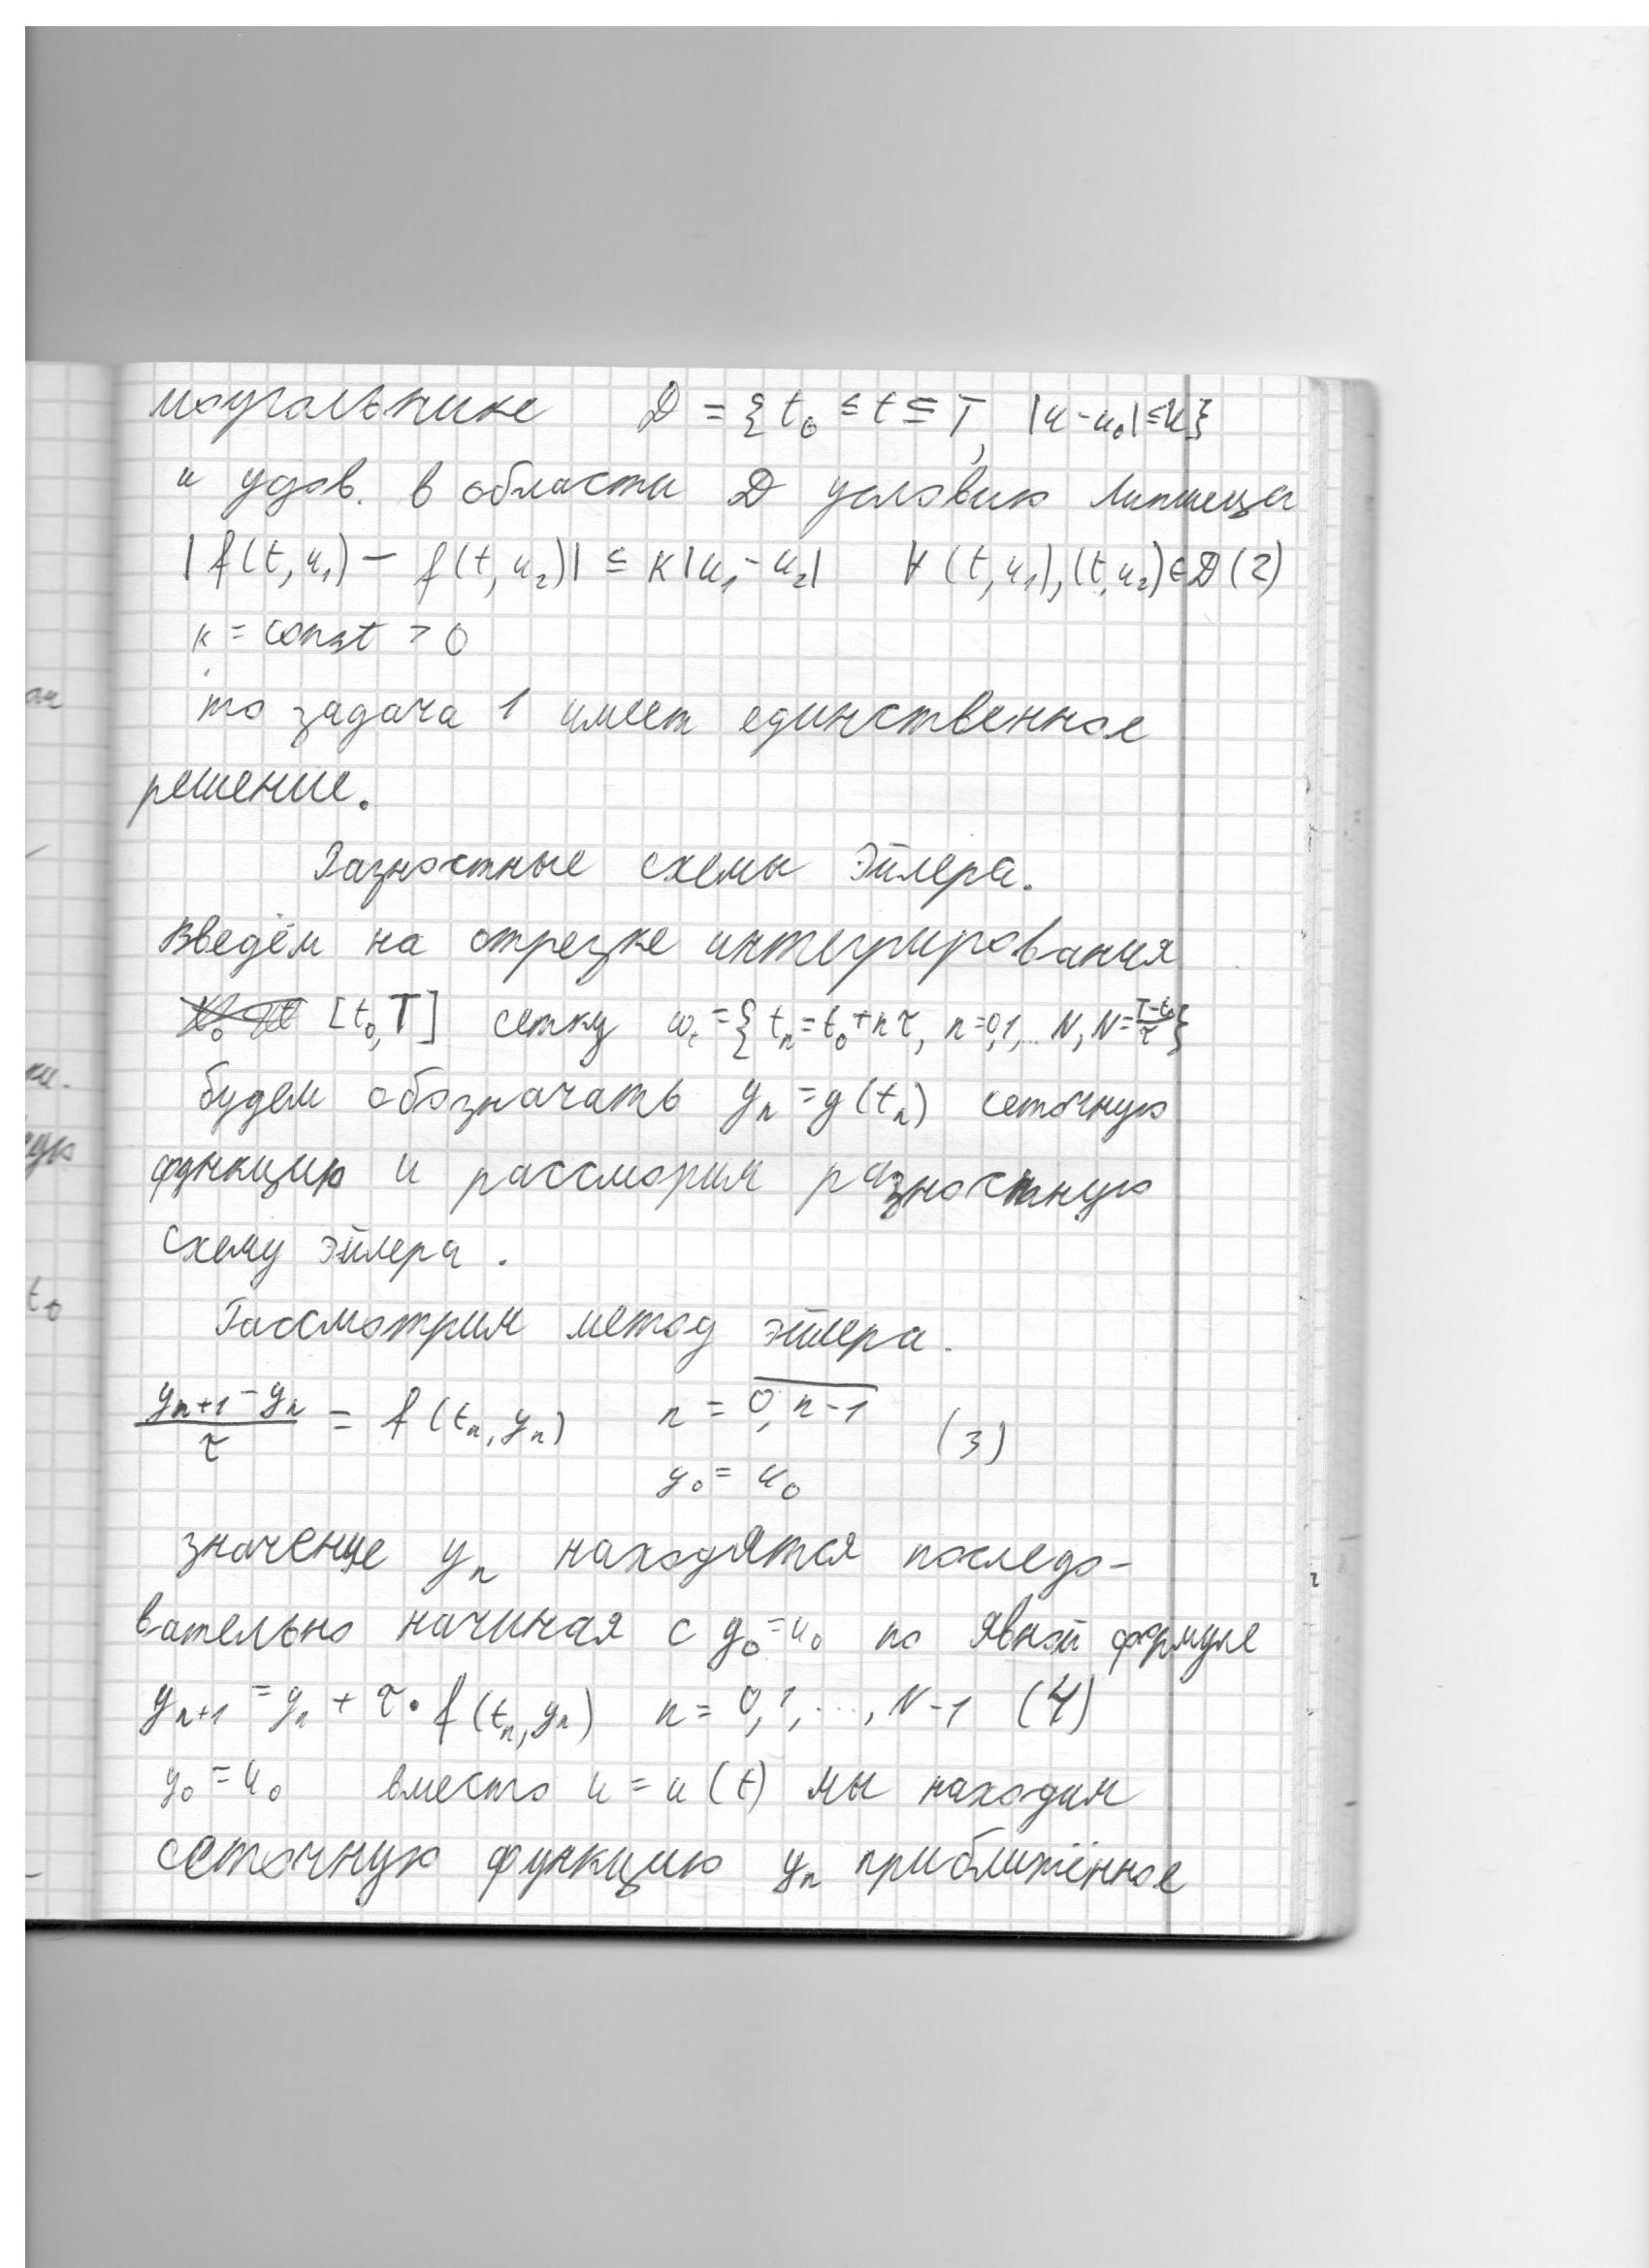 моугольнике D = {t₀ ≤ t ≤ T, |u - u₀| ≤ U}
и удов. в области D условию Липшеца
|f(t, u₁) - f(t, u₂)| ≤ K|u₁ - u₂| ∀ (t, u₁), (t, u₂) ∈ D (2)
K = const > 0
то задача 1 имеет единственное
решение.
Разностные схемы Эйлера.
Введём на отрезке интегрирования
[t₀, T] сетку ω_τ = {t_n = t₀ + nτ, n = 0,1,... N, N = (T-t₀)/τ}
будем обозначать y_n = y(t_n) сеточную
функцию и рассморим разностную
схему Эйлера.
Рассмотрим метод Эйлера.
(y_{n+1} - y_n)/τ = f(t_n, y_n) n = \overline{0, n-1} (3)
y₀ = u₀
значение y_n находятся последо-
вательно начиная с y₀ = u₀ по явной формуле
y_{n+1} = y_n + τ · f(t_n, y_n) n = 0, 1, ..., N-1 (4)
y₀ = u₀ вместо u = u(t) мы находим
сеточную функцию y_n приближённое